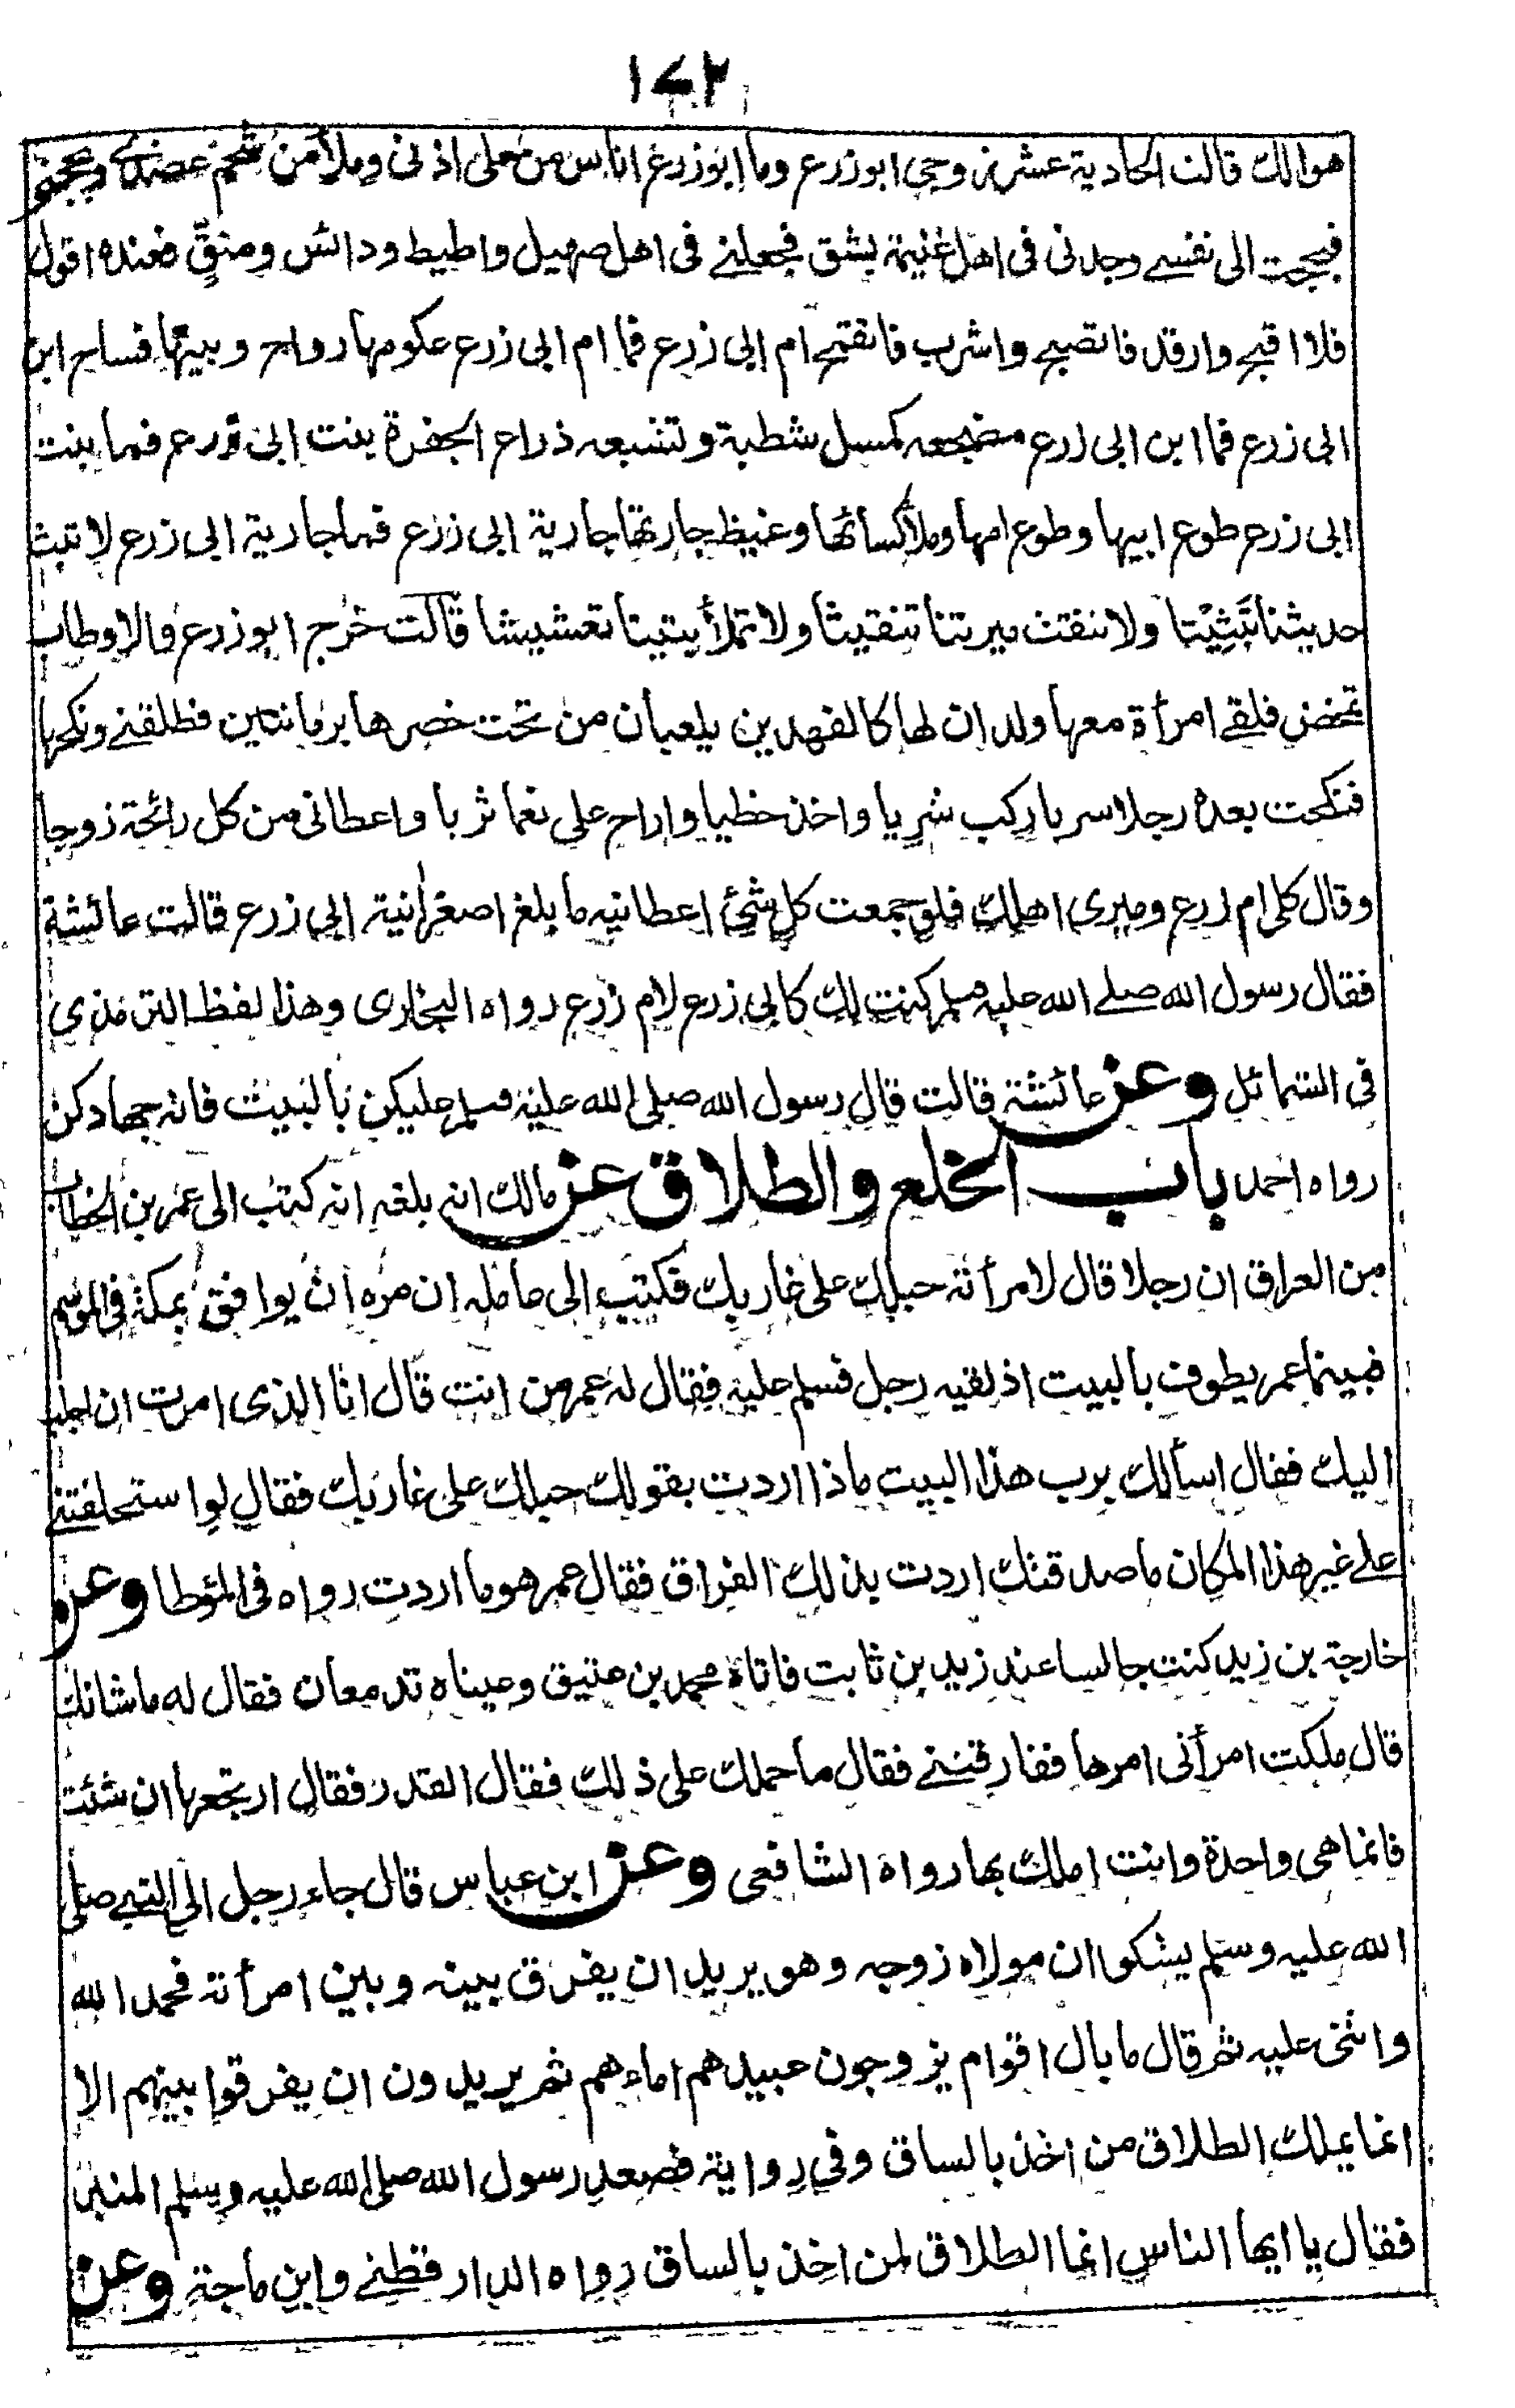 ١٧٢
هوالك قالت الحادية عشر زوجي ابوزرع وما ابوزرع اناس من حلى اذنى وملأ من شحم عضدى وبجحنى
فبجحت الى نفسى وجدنى فى اهل غنيمة بشق فجعلنى فى اهل صهيل واطيط ودائس ومنقٍّ فعنده اقول
فلا اقبح وارقد فاتصبح واشرب فاتقمح ام ابى زرع فما ام ابى زرع عكومها رداح وبيتها فساح ابن
ابى زرع فما ابن ابى زرع مضجعه كمسل شطبة وتشبعه ذراع الجفرة بنت ابى زرع فما بنت
ابى زرع طوع ابيها وطوع امها وملأ كسائها وغيظ جارتها جارية ابى زرع فما جارية ابى زرع لا تبث
حديثنا تبثيثا ولا تنقث ميرتنا تنقيثا ولا تملأ بيتنا تعشيشا قالت خرج ابوزرع والاوطاب
تمخض فلقى امرأة معها ولدان لها كالفهدين يلعبان من تحت خصرها برمانتين فطلقنى ونكحها
فنكحت بعده رجلا سريا ركب شريا واخذ خطيا واراح على نعما ثريا واعطانى من كل رائحة زوجا
وقال كلى ام زرع وميرى اهلك فلو جمعت كل شئ اعطانيه ما بلغ اصغر انية ابى زرع قالت عائشة
فقال رسول الله صلى الله عليه وسلم كنت لك كابى زرع لام زرع رواه البخارى وهذا لفظ الترمذى
فى الشمائل وعن عائشة قالت قال رسول الله صلى الله عليه وسلم عليكن بالبيت فانه جهادكن
رواه احمد باب الخلع والطلاق عن مالك انه بلغه انه كتب الى عمر بن الخطاب
من العراق ان رجلا قال لامرأته حبلك على غاربك فكتب الى عامله ان مره ان يوافق بمكة فى الموسم
فبينما عمر يطوف بالبيت اذ لقيه رجل فسلم عليه فقال له عمر من انت قال انا الذى امرت ان اجلب
اليك فقال اسألك برب هذا البيت ماذا اردت بقولك حبلك على غاربك فقال لو استحلفتنى
على غير هذا المكان ما صدقتك اردت بذلك الفراق فقال عمر هو ما اردت رواه فى المؤطا وعن
خارجة بن زيد كنت جالسا عند زيد بن ثابت فاتاه محمد بن عتيق وعيناه تدمعان فقال له ما شانك
قال ملكت امرأتى امرها ففارقتنى فقال ما حملك على ذلك فقال القدر فقال ارتجعها ان شئت
فانما هى واحدة وانت املك بها رواه الشافعى وعن ابن عباس قال جاء رجل الى النبى صلى
الله عليه وسلم يشكو ان مولاه زوجه وهو يريد ان يفرق بينه وبين امرأته فحمد الله
واثنى عليه ثم قال ما بال اقوام يزوجون عبيدهم اماءهم ثم يريدون ان يفرقوا بينهم الا
انما يملك الطلاق من اخذ بالساق وفى رواية فصعد رسول الله صلى الله عليه وسلم المنبر
فقال يا ايها الناس انما الطلاق لمن اخذ بالساق رواه الدارقطنى وابن ماجة وعن